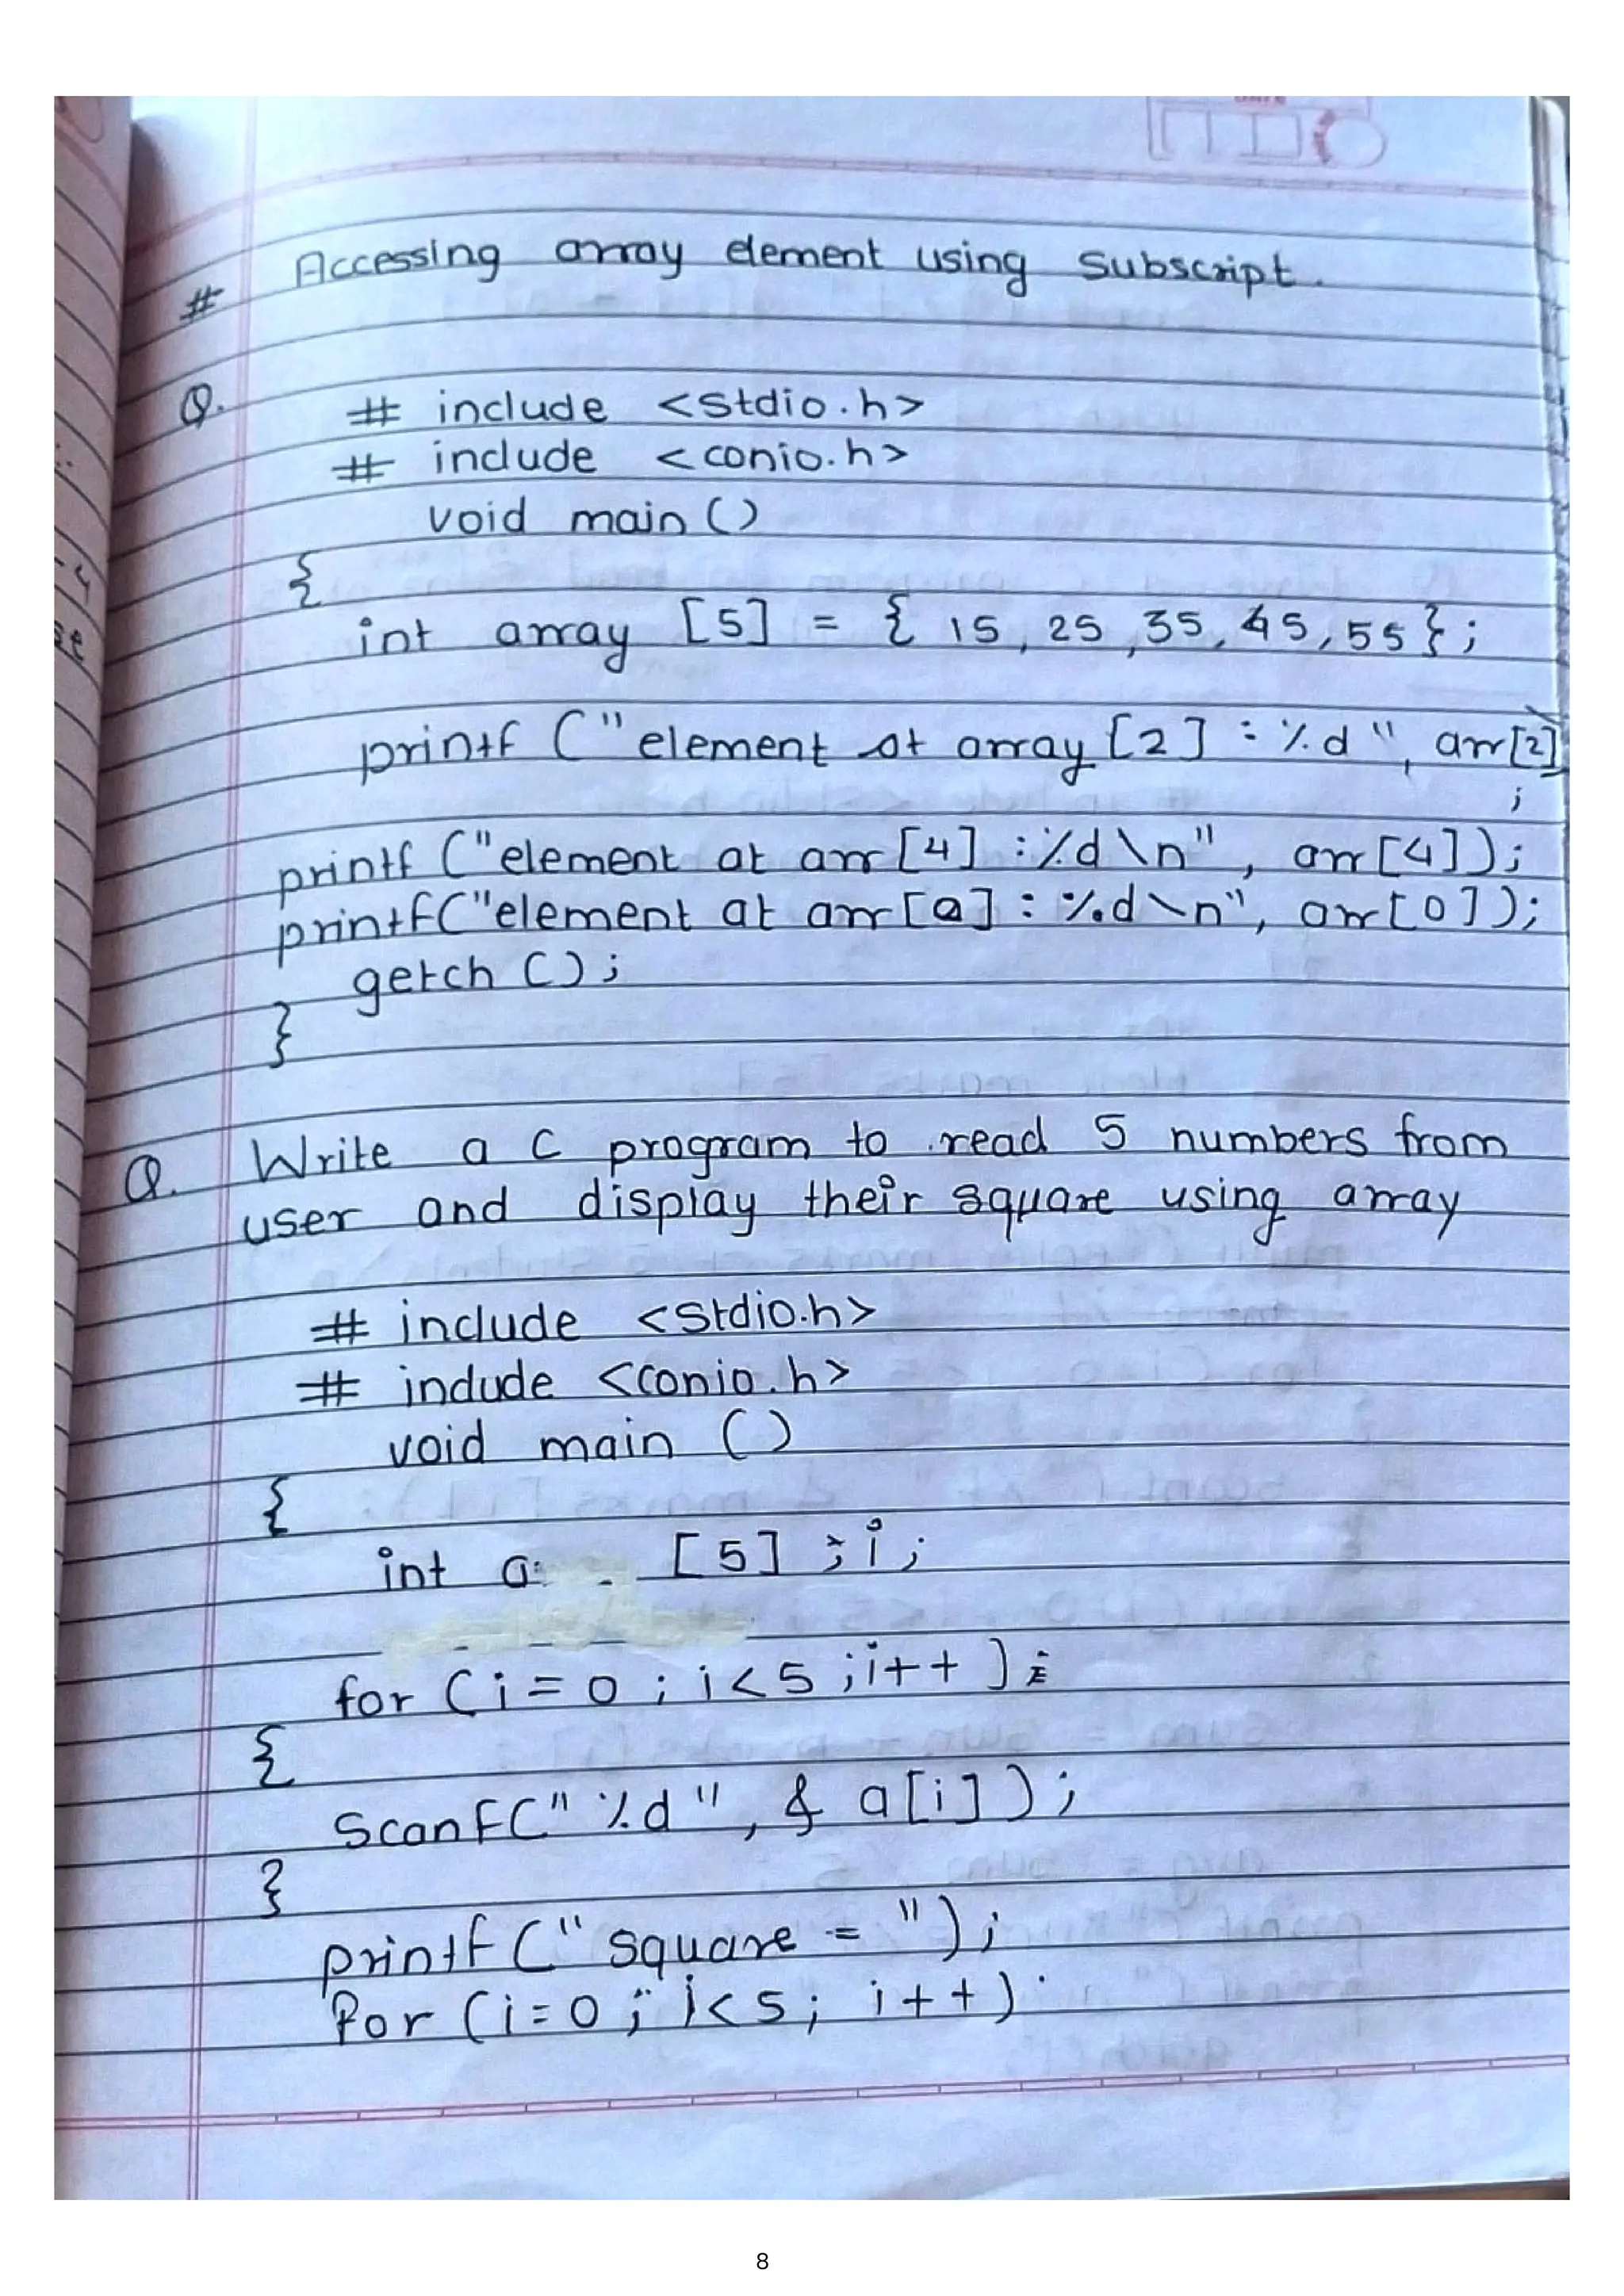 # Accessing array element using subscript.
Q. # include <stdio.h>
# include <conio.h>
void main ()
{
int array [5] = { 15, 25, 35, 45, 55};
printf ("element at array [2] : %d", arr[2]
;
printf ("element at arr [4] : %d \n", arr [4]);
printf("element at arr [0] : %d \n", arr [0]);
getch ();
}
Q. Write a C program to read 5 numbers from
user and display their square using array
# include <stdio.h>
# include <conio.h>
void main ()
{
int a [5] ; i ;
for ( i = 0 ; i < 5 ; i++ ) ;
{
scanf(" %d ", & a[i] ) ;
}
printf (" square = ") ;
for ( i = 0 ; i < 5 ; i + + )
8